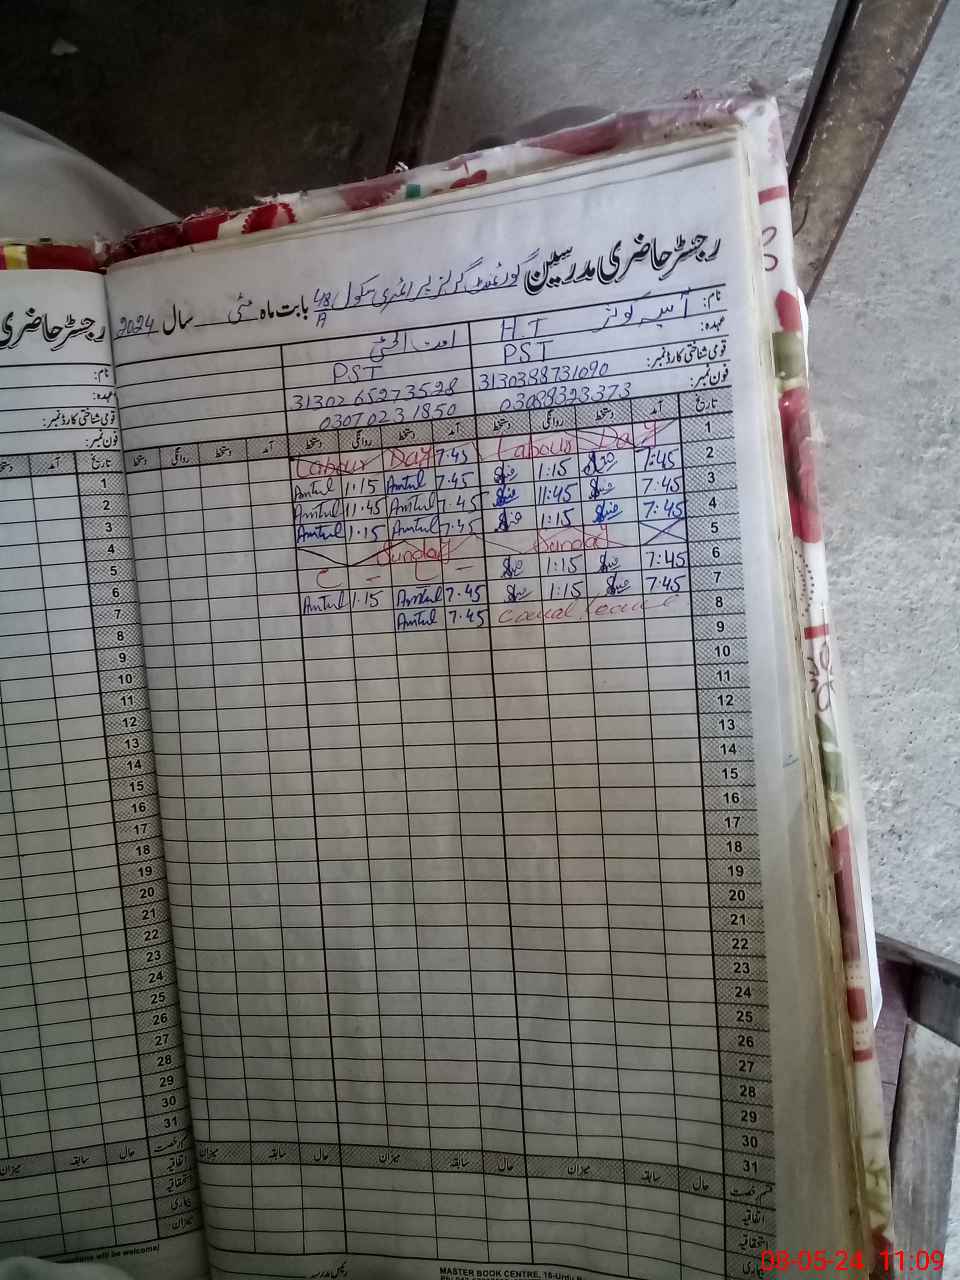 رجسٹر حاضری مدرسین گورنمنٹ گرلز پرائمری سکول 48/A بابت ماہ مئی سال 2024
رجسٹر حاضری
نام:
عہدہ: H T
PST PST
قومی شناختی کارڈ نمبر: 3130388731090 3130265273528
فون نمبر: 03089323373 03070231850
نام:
عہدہ:
قومی شناختی کارڈ نمبر:
فون نمبر:
تاریخ آمد دستخط روانگی دستخط آمد دستخط روانگی دستخط آمد دستخط روانگی دستخط
تاریخ آمد
1 Labour Day Labour Day 7.45
2 7:45 1:15 7.45 Amtul 1.15 Amtul
3 7:45 11:45 7.45 Amtul 11.45 Amtul
4 7:45 1:15 7.45 Amtul 1.15 Amtul
5 Sunday Sunday
6 7:45 1:15
7 7:45 1:15 7.45 Amtul 1.15 Amtul
8 7.45 Amtul
9
10
11
12
13
14
15
16
17
18
19
20
21
22
23
24
25
26
27
28
29
30
31
1
2
3
4
5
6
7
8
9
10
11
12
13
14
15
16
17
18
19
20
21
22
23
24
25
26
27
28
29
30
31
قسم رخصت حال سابقہ میزان حال سابقہ میزان حال سابقہ میزان
اتفاقیہ
استحقاقیہ
بیماری
حال سابقہ میزان
اتفاقیہ
استحقاقیہ
بیماری
میزان
will be welcome)
رئیس مدرسہ
MASTER BOOK CENTRE, 16-Urdu
08-05-24 11:09